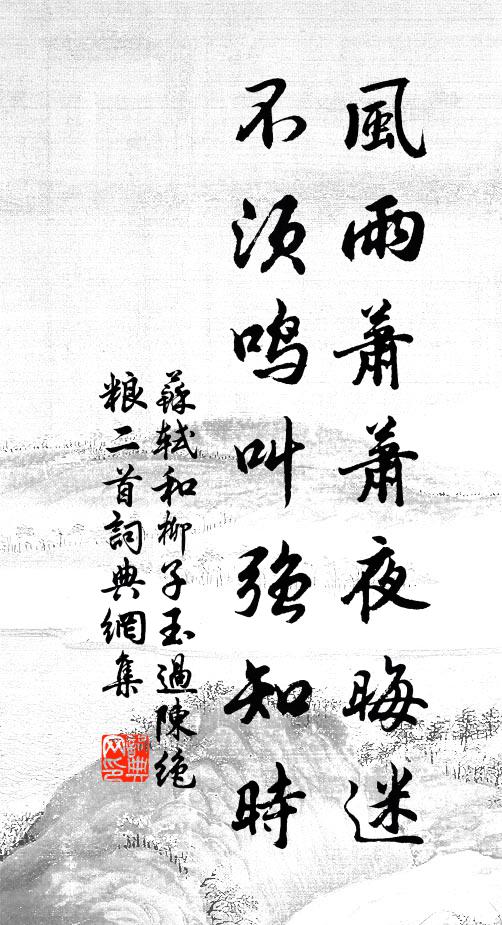 風雨蕭蕭夜晦迷
不須鳴叫強知時
蘇軾和柳子玉過陳絶
粮二首詞典網集